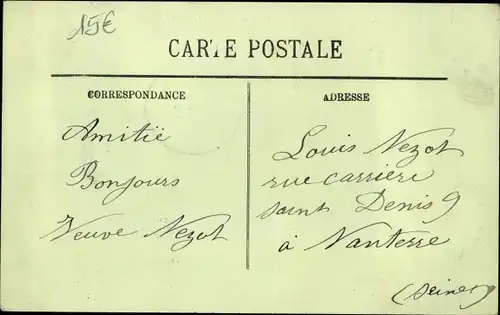 15€
CARTE POSTALE
CORRESPONDANCE
Amitié
Bonjours
Veuve Nezot
ADRESSE
Louis Nezot
rue carrière
saint Denis 9
à Nanterre
(Seine)